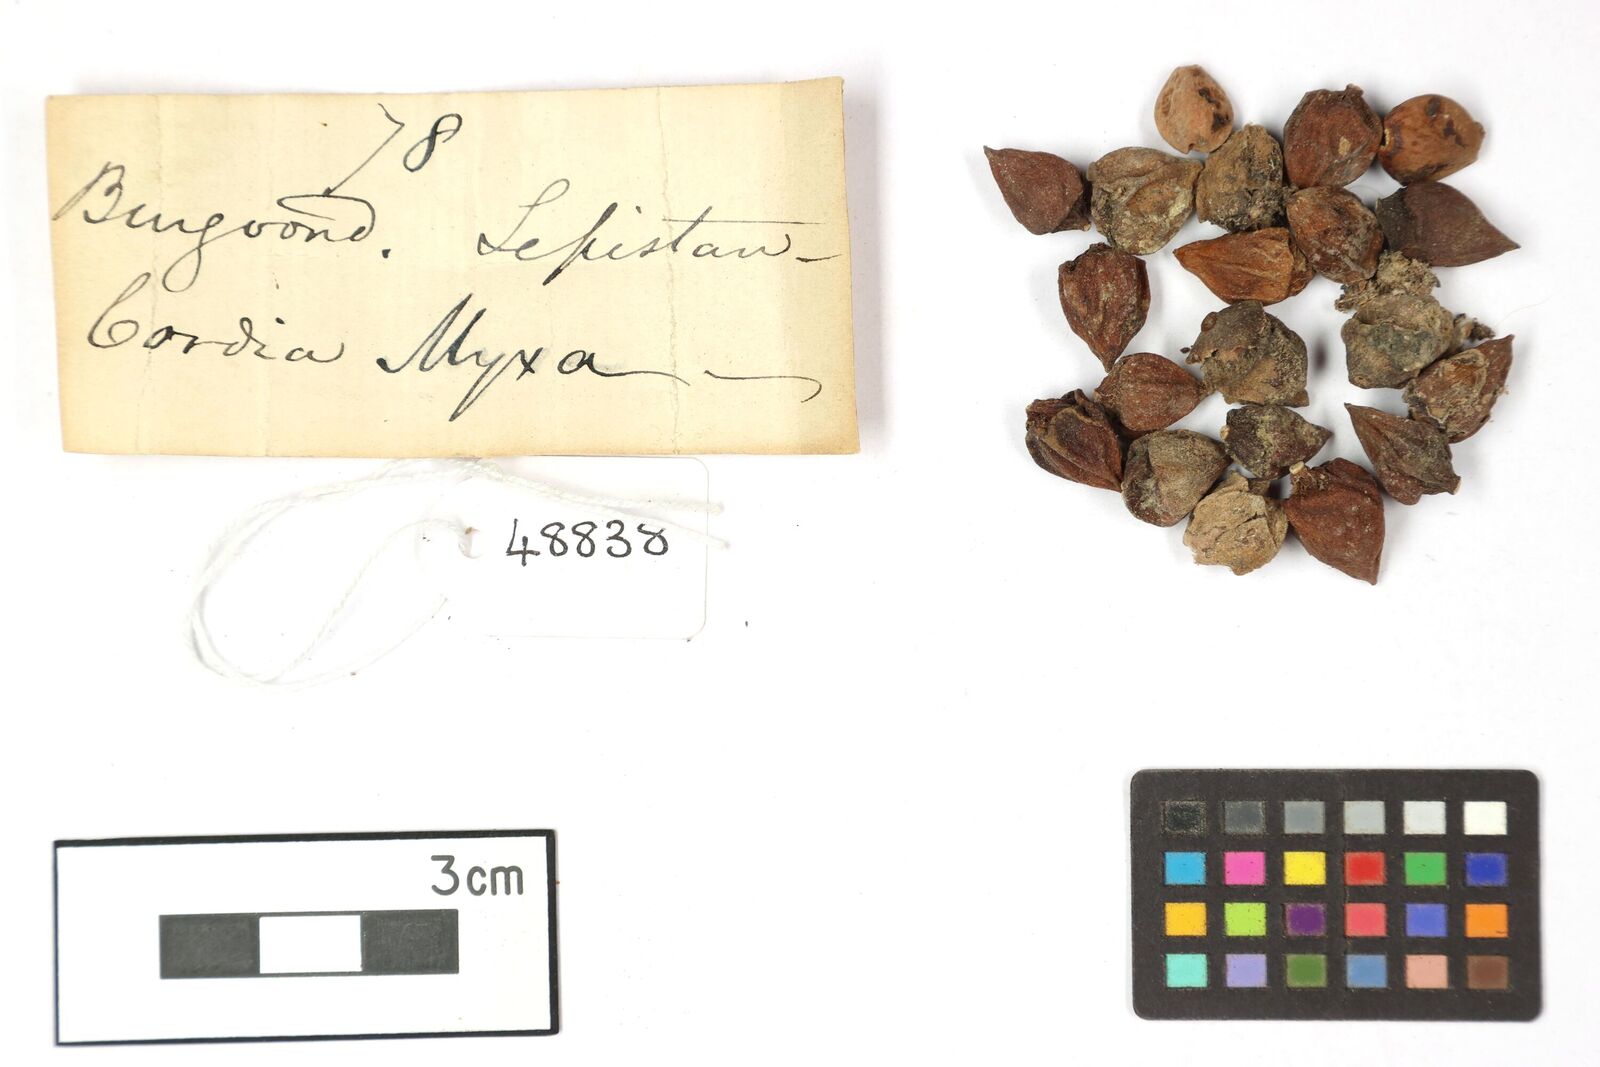 78
Burgoond. Sepistan-
Cordia Myxa
48838
3cm